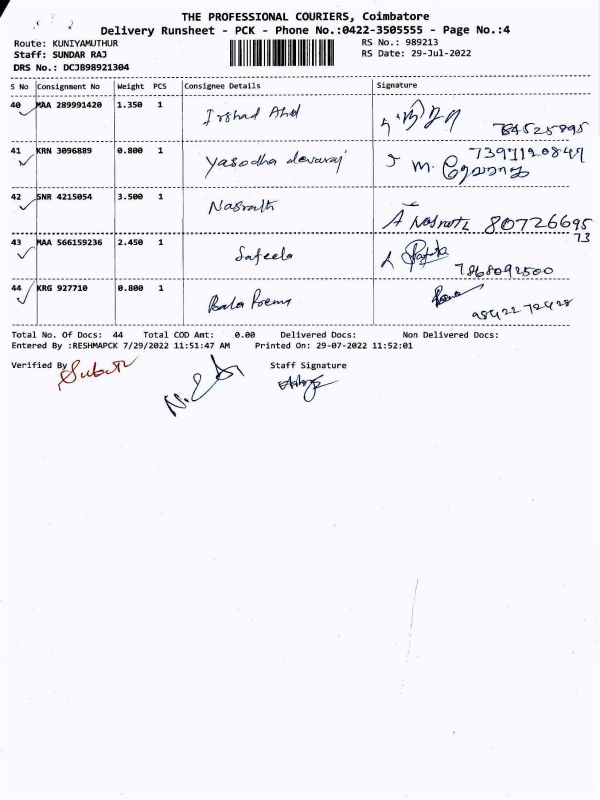 THE PROFESSIONAL COURIERS, Coimbatore
Delivery Runsheet - PCK - Phone No.:0422-3505555 - Page No.:4
Route: KUNIYAMUTHUR
RS No.: 989213
Staff: SUNDAR RAJ
RS Date: 29-Jul-2022
DRS No.: DCJB98921304
S No Consignment No Weight PCS Consignee Details Signature
40 MAA 289991420 1.350 1 Irshad
41 KRN 3096889 0.800 1 Yasodha devaraj 7397120847
42 SNR 4215054 3.500 1 Nasrath A Nasrath 8072669573
43 MAA 566159236 2.450 1 Safeela 7868092500
44 KRG 927710 0.800 1 Bala 98422 72428
Total No. Of Docs: 44 Total COD Amt: 0.00 Delivered Docs: Non Delivered Docs:
Entered By :RESHMAPCK 7/29/2022 11:51:47 AM Printed On: 29-07-2022 11:52:01
Verified By Staff Signature